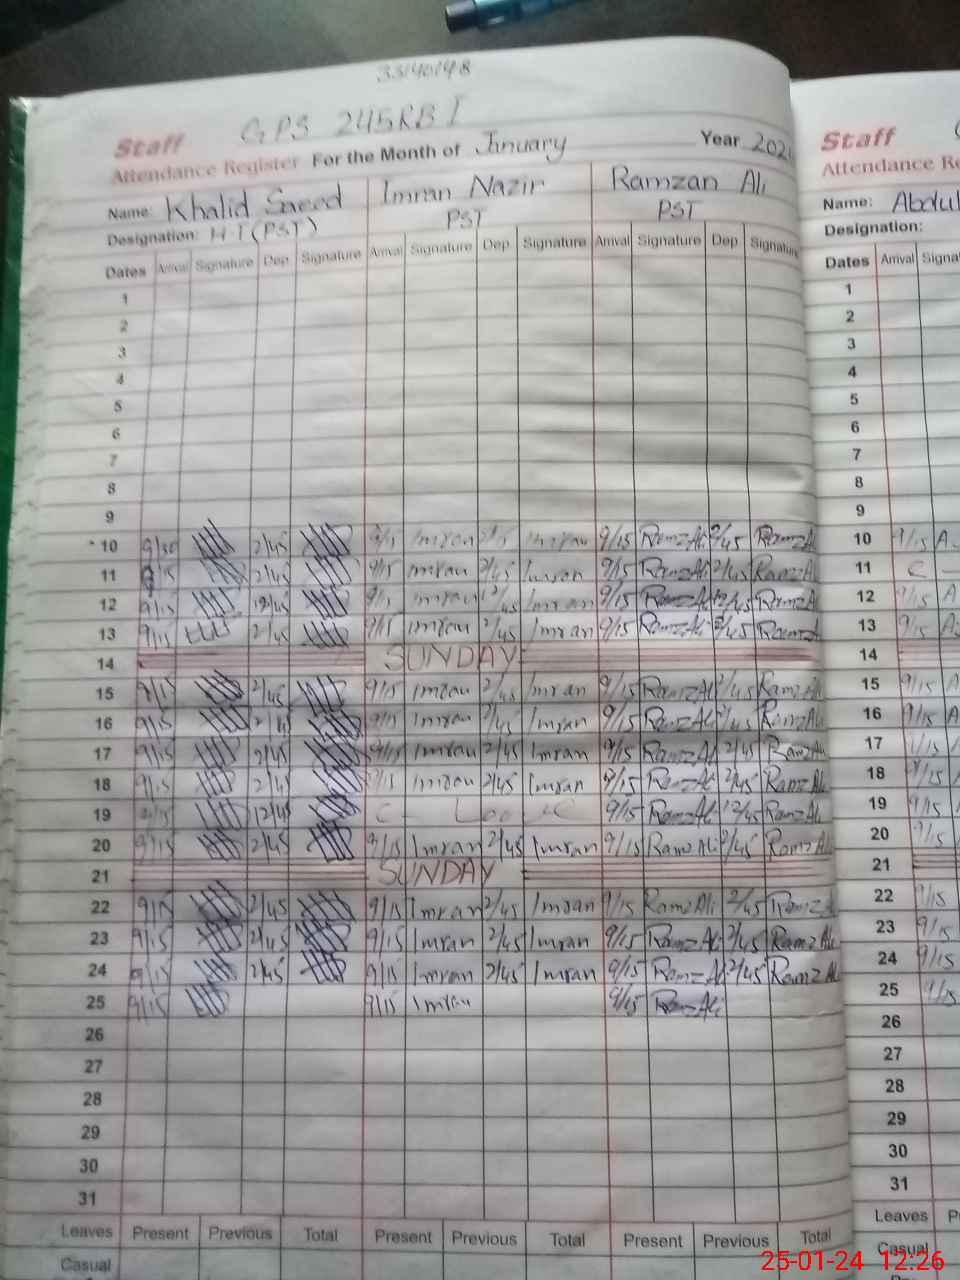 33140148
GPS 245RB I
Staff
Attendance Register For the Month of January Year 202
Name: Khalid Saeed Imran Nazir Ramzan Ali
Designation: H-T (PST) PST PST
Dates Arrival Signature Dep. Signature Arrival Signature Dep. Signature Arrival Signature Dep. Signature
1
2
3
4
5
6
7
8
9
10 9/30 2/45 Imran Imran 9/15 RamzAli 2/45 RamzA
11 9/15 2/45 9/15 Imran 2/45 Imran 9/15 RamzAli 2/45 RamzA
12 9/15 12/45 9/15 Imran 12/45 Imran 9/15 RamzAli 12/45 RamzA
13 9/15 2/45 9/15 Imran 2/45 Imran 9/15 RamzAli 2/45 RamzA
14 SUNDAY
15 9/15 2/45 9/15 Imran 2/45 Imran 9/15 RamzAli 2/45 RamzAli
16 9/15 2/45 9/15 Imran 2/45 Imran 9/15 RamzAli 2/45 RamzAli
17 9/15 2/45 9/15 Imran 2/45 Imran 9/15 RamzAli 2/45 RamzAli
18 9/15 2/45 9/15 Imran 2/45 Imran 9/15 RamzAli 2/45 RamzAli
19 9/15 12/45 C- Leave 9/15 RamzAli 12/45 RamzAli
20 9/15 2/45 9/15 Imran 2/45 Imran 9/15 RamzAli 2/45 RamzAli
21 SUNDAY
22 9/15 2/45 9/15 Imran 2/45 Imran 9/15 RamzAli 2/45 RamzA
23 9/15 2/45 9/15 Imran 2/45 Imran 9/15 RamzAli 2/45 RamzAli
24 9/15 2/45 9/15 Imran 2/45 Imran 9/15 RamzAli 2/45 RamzAli
25 9/15 9/15 Imran 9/15 RamzAli
26
27
28
29
30
31
Leaves Present Previous Total Present Previous Total Present Previous Total
Casual
Staff
Attendance Re
Name: Abdul
Designation:
Dates Arrival Signa
1
2
3
4
5
6
7
8
9
10 9/15 A
11 C -
12 9/15 A
13 9/15 A
14
15 9/15 A
16 9/15 A
17 9/15
18 9/15
19 9/15
20 9/15
21
22 9/15
23 9/15
24 9/15
25 9/15
26
27
28
29
30
31
Leaves P
Casual
25-01-24 12:26